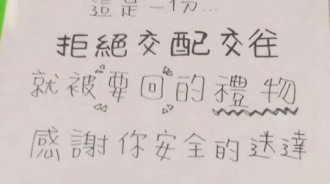 這是一份...
拒絕交配交往
就被要回的禮物
感謝你安全的送達